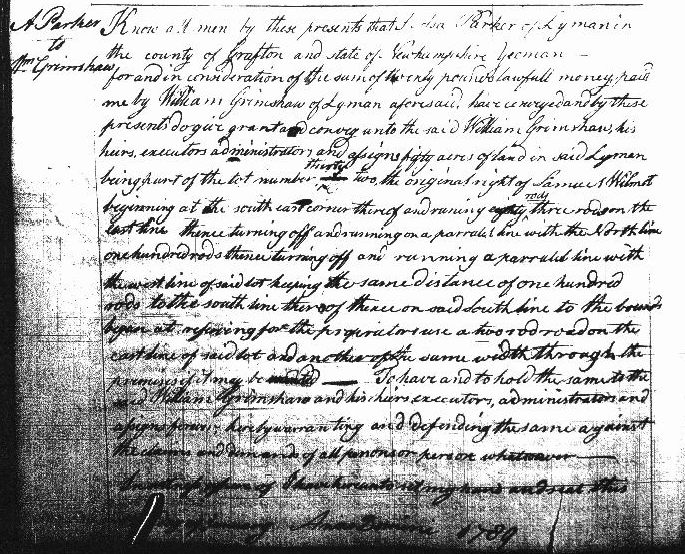 A Parker
to
Wm Grimshaw
Know all men by these presents that I Asa Parker of Lyman in
the county of Grafton and state of Newhampshire Yeoman —
for and in consideration of the sum of twenty pounds lawfull money, paid
me by William Grimshaw of Lyman aforesaid, have conveyed and by these
presents do give grant and convey unto the said William Grimshaw, his
heirs, executors administrators and assigns fifty acres of land in said Lyman
being part of the lot number thirty two, the original right of Samuel Wilmot
beginning at the south east corner thereof and runing eighty three rods on the
east line thence turning off and running on a parralel line with the North line
one hundred rods thence turning off and running a parralel line with
the west line of said lot keeping the same distance of one hundred
rods to the south line thereof thence on said south line to the bounds
began at, reserving for the propriators use a two rod road on the
east line of said lot and another of the same width through the
premises if it may be — To have and to hold the same to the
said William Grimshaw and his heirs, executors, administrators and
assigns forever hereby warranting and defending the same against
the claims and demands of all persons or person whatsoever —
In witness whereof I have hereunto set my hand and seal this
Anno Domini 1789